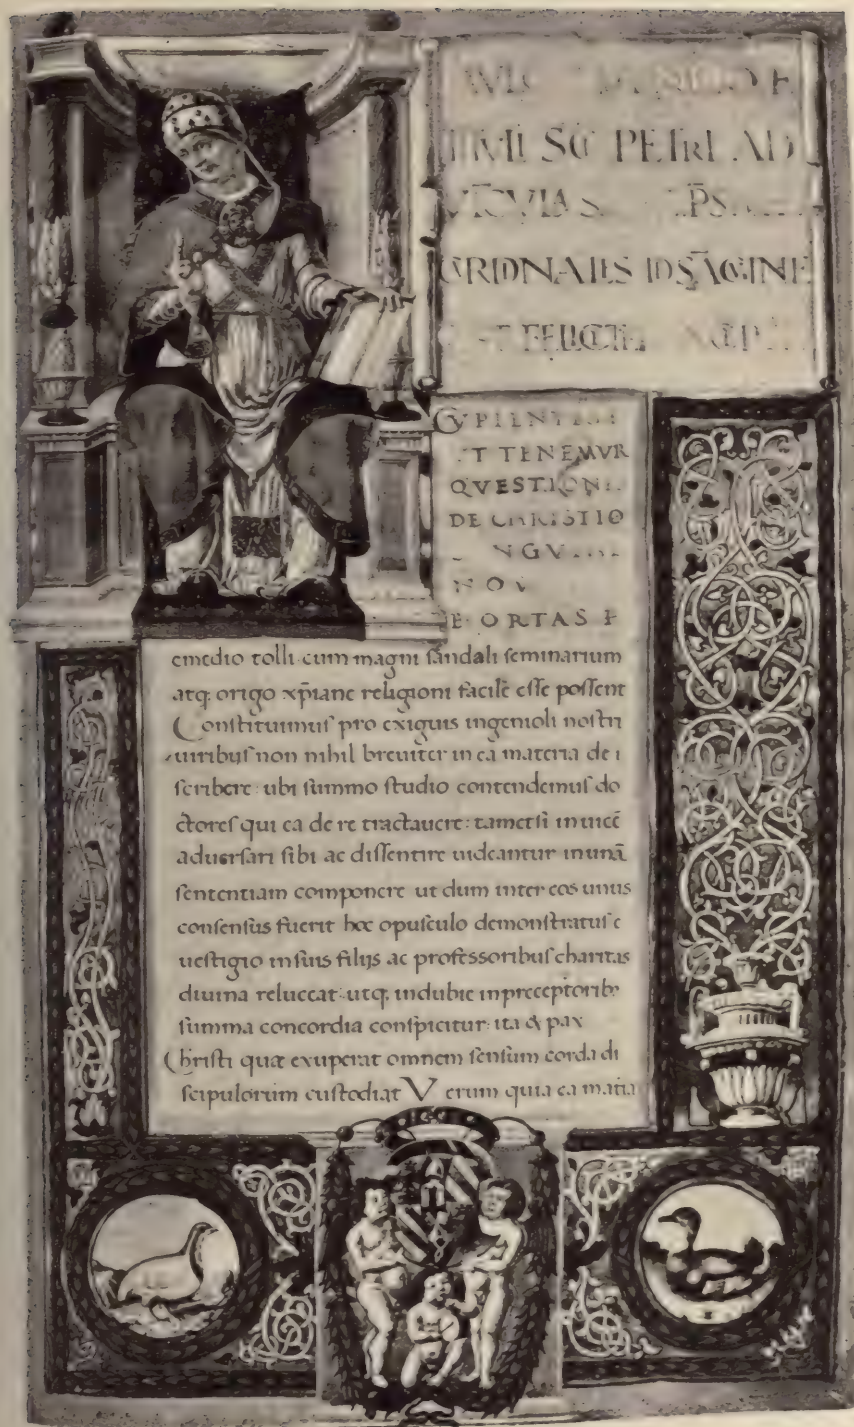 SC̄ PETRI AD
CUPIENTES
ET TENEMUR
QVESTION
DE CHRISTI
NGV
NOV
E ORTAS E
emedio tolli cum magni scandali seminarium
atq; origo xp̄iane religioni facile esse possent
Constituimus pro exiguis ingenioli nostri
uiribus non nihil breuiter in ea materia de i
scribere: ubi summo studio contendemus do
ctores qui ea de re tractauere: tametsi inuicē
aduersari sibi ac dissentire uideantur in unā
sententiam componere ut dum inter eos unus
consensus fuerit hoc opusculo demonstratus e
uestigio in suis filijs ac professoribus charitas
diuina reluceat: utq; indubie in preceptorib;
summa concordia conspicitur: ita & pax
Christi quæ exuperat omnem sensum corda di
scipulorum custodiat Verum quia ea matia